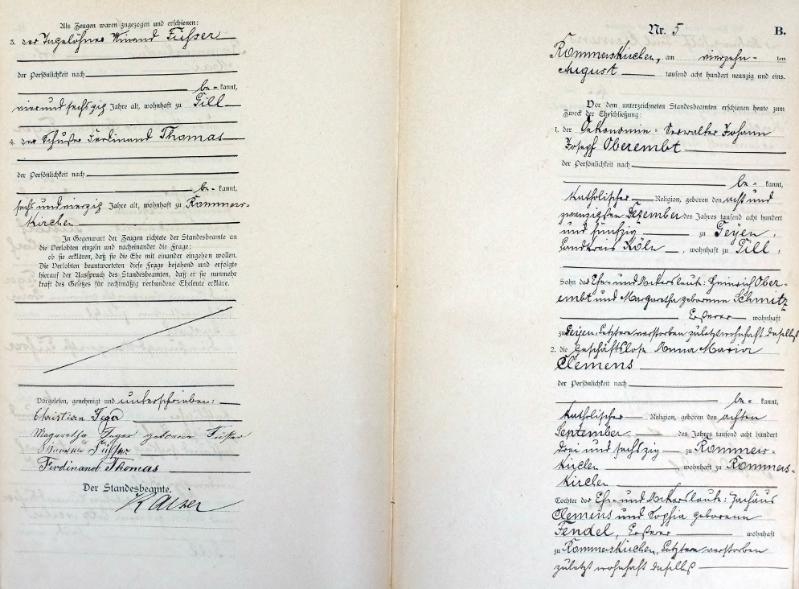 Als Zeugen waren zugezogen und erschienen:
3. der Tagelöhner Winand Füsser
der Persönlichkeit nach
be- kannt,
vierundsechszig Jahre alt, wohnhaft zu Gill
4. der Schuster Ferdinand Thomas
der Persönlichkeit nach
be- kannt,
sechsundvierzig Jahre alt, wohnhaft zu Rommers-
kirchen
In Gegenwart der Zeugen richtete der Standesbeamte an
die Verlobten einzeln und nacheinander die Frage:
ob sie erklären, daß sie die Ehe mit einander eingehen wollen.
Die Verlobten beantworteten diese Frage bejahend und erfolgte
hierauf der Ausspruch des Standesbeamten, daß er sie nunmehr
kraft des Gesetzes für rechtmäßig verbundene Eheleute erkläre.
Vorgelesen, genehmigt und unterschrieben:
Christian
Magaretha geborene Füsser
Winand Füsser
Ferdinand Thomas
Der Standesbeamte.
Kaiser
Nr. 5 B.
Rommerskirchen, am vierzehn ten
August tausend acht hundert neunzig und eins.
Vor dem unterzeichneten Standesbeamten erschienen heute zum
Zweck der Eheschließung:
1. der Oekonomie-Verwalter Johann
Josef Oberembt
der Persönlichkeit nach
be- kannt,
katholischer Religion, geboren den acht und
zwanzigsten Dezember des Jahres tausend acht hundert
und fünfzig zu Geyen,
Landkreis Köln, wohnhaft zu Gill,
Sohn der Ehe- und Ackersleute: Heinrich Ober-
embt und Margaretha geborenen Schmitz
Ersterer wohnhaft
zu Geyen, Letztere verstorben zuletzt wohnhaft daselbst
2. die Geschäftslose Anna Maria
Clemens
der Persönlichkeit nach
be- kannt,
katholischer Religion, geboren den achten
September des Jahres tausend acht hundert
drei und sechszig zu Rommers-
kirchen, wohnhaft zu Rommers-
kirchen
Tochter der Ehe- und Ackersleute: Zachäus
Clemens und Sophia geborenen
Fendel, Ersterer wohnhaft
zu Rommerskirchen, Letztere verstorben
zuletzt wohnhaft daselbst